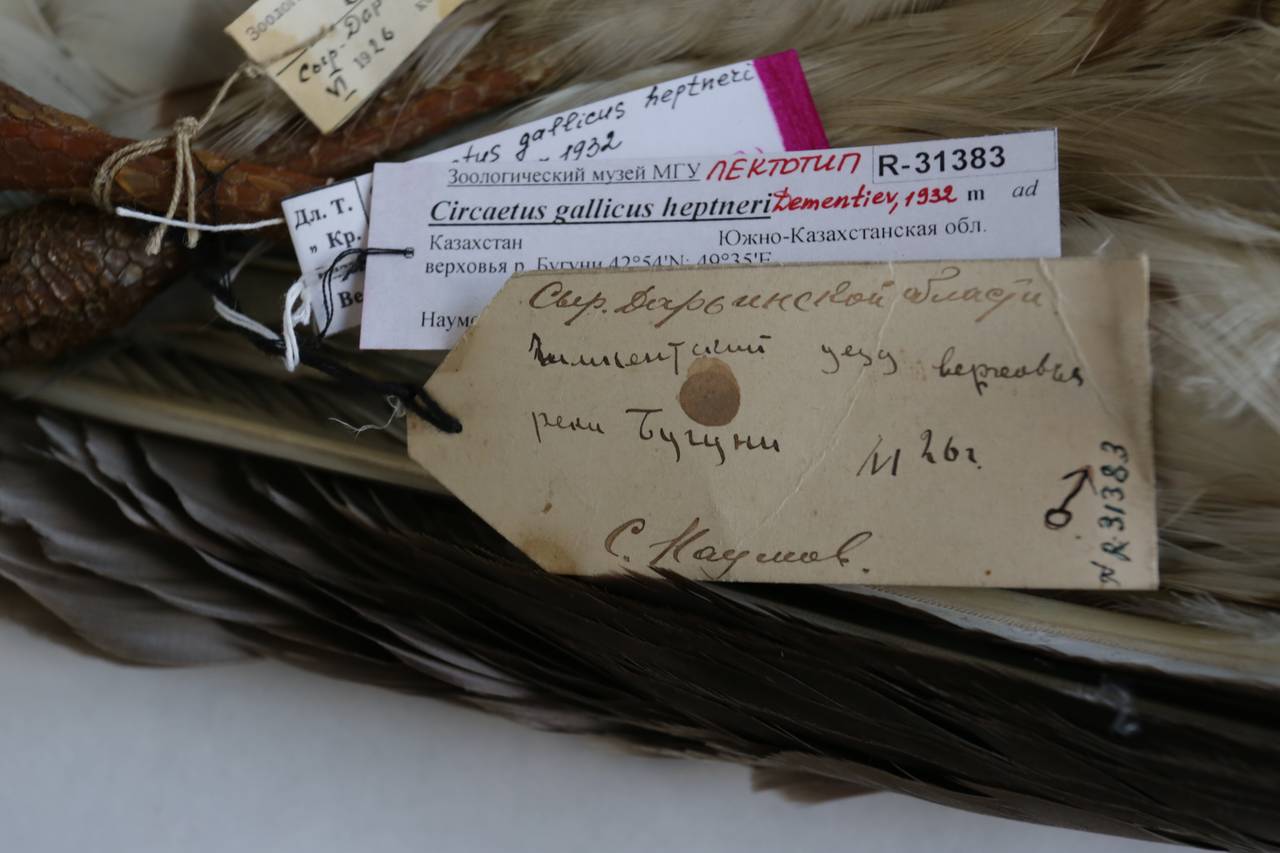 Зоолог
Сыр-Дар
VI 1926
tus gallicus heptneri
1932
Зоологический музей МГУ ЛЕКТОТИП R-31383
Circaetus gallicus heptneri Dementiev, 1932 m ad
Казахстан Южно-Казахстанская обл.
верховья р. Бугуни 42°54'N; 49°35'E
Наумо
Дл. Т.
„ Кр.
Ве
Сыр. Дарьинской области
Чимкентский уезд верховья
реки Бугуни VI 26г.
С. Наумов.
♂
№ R-31383